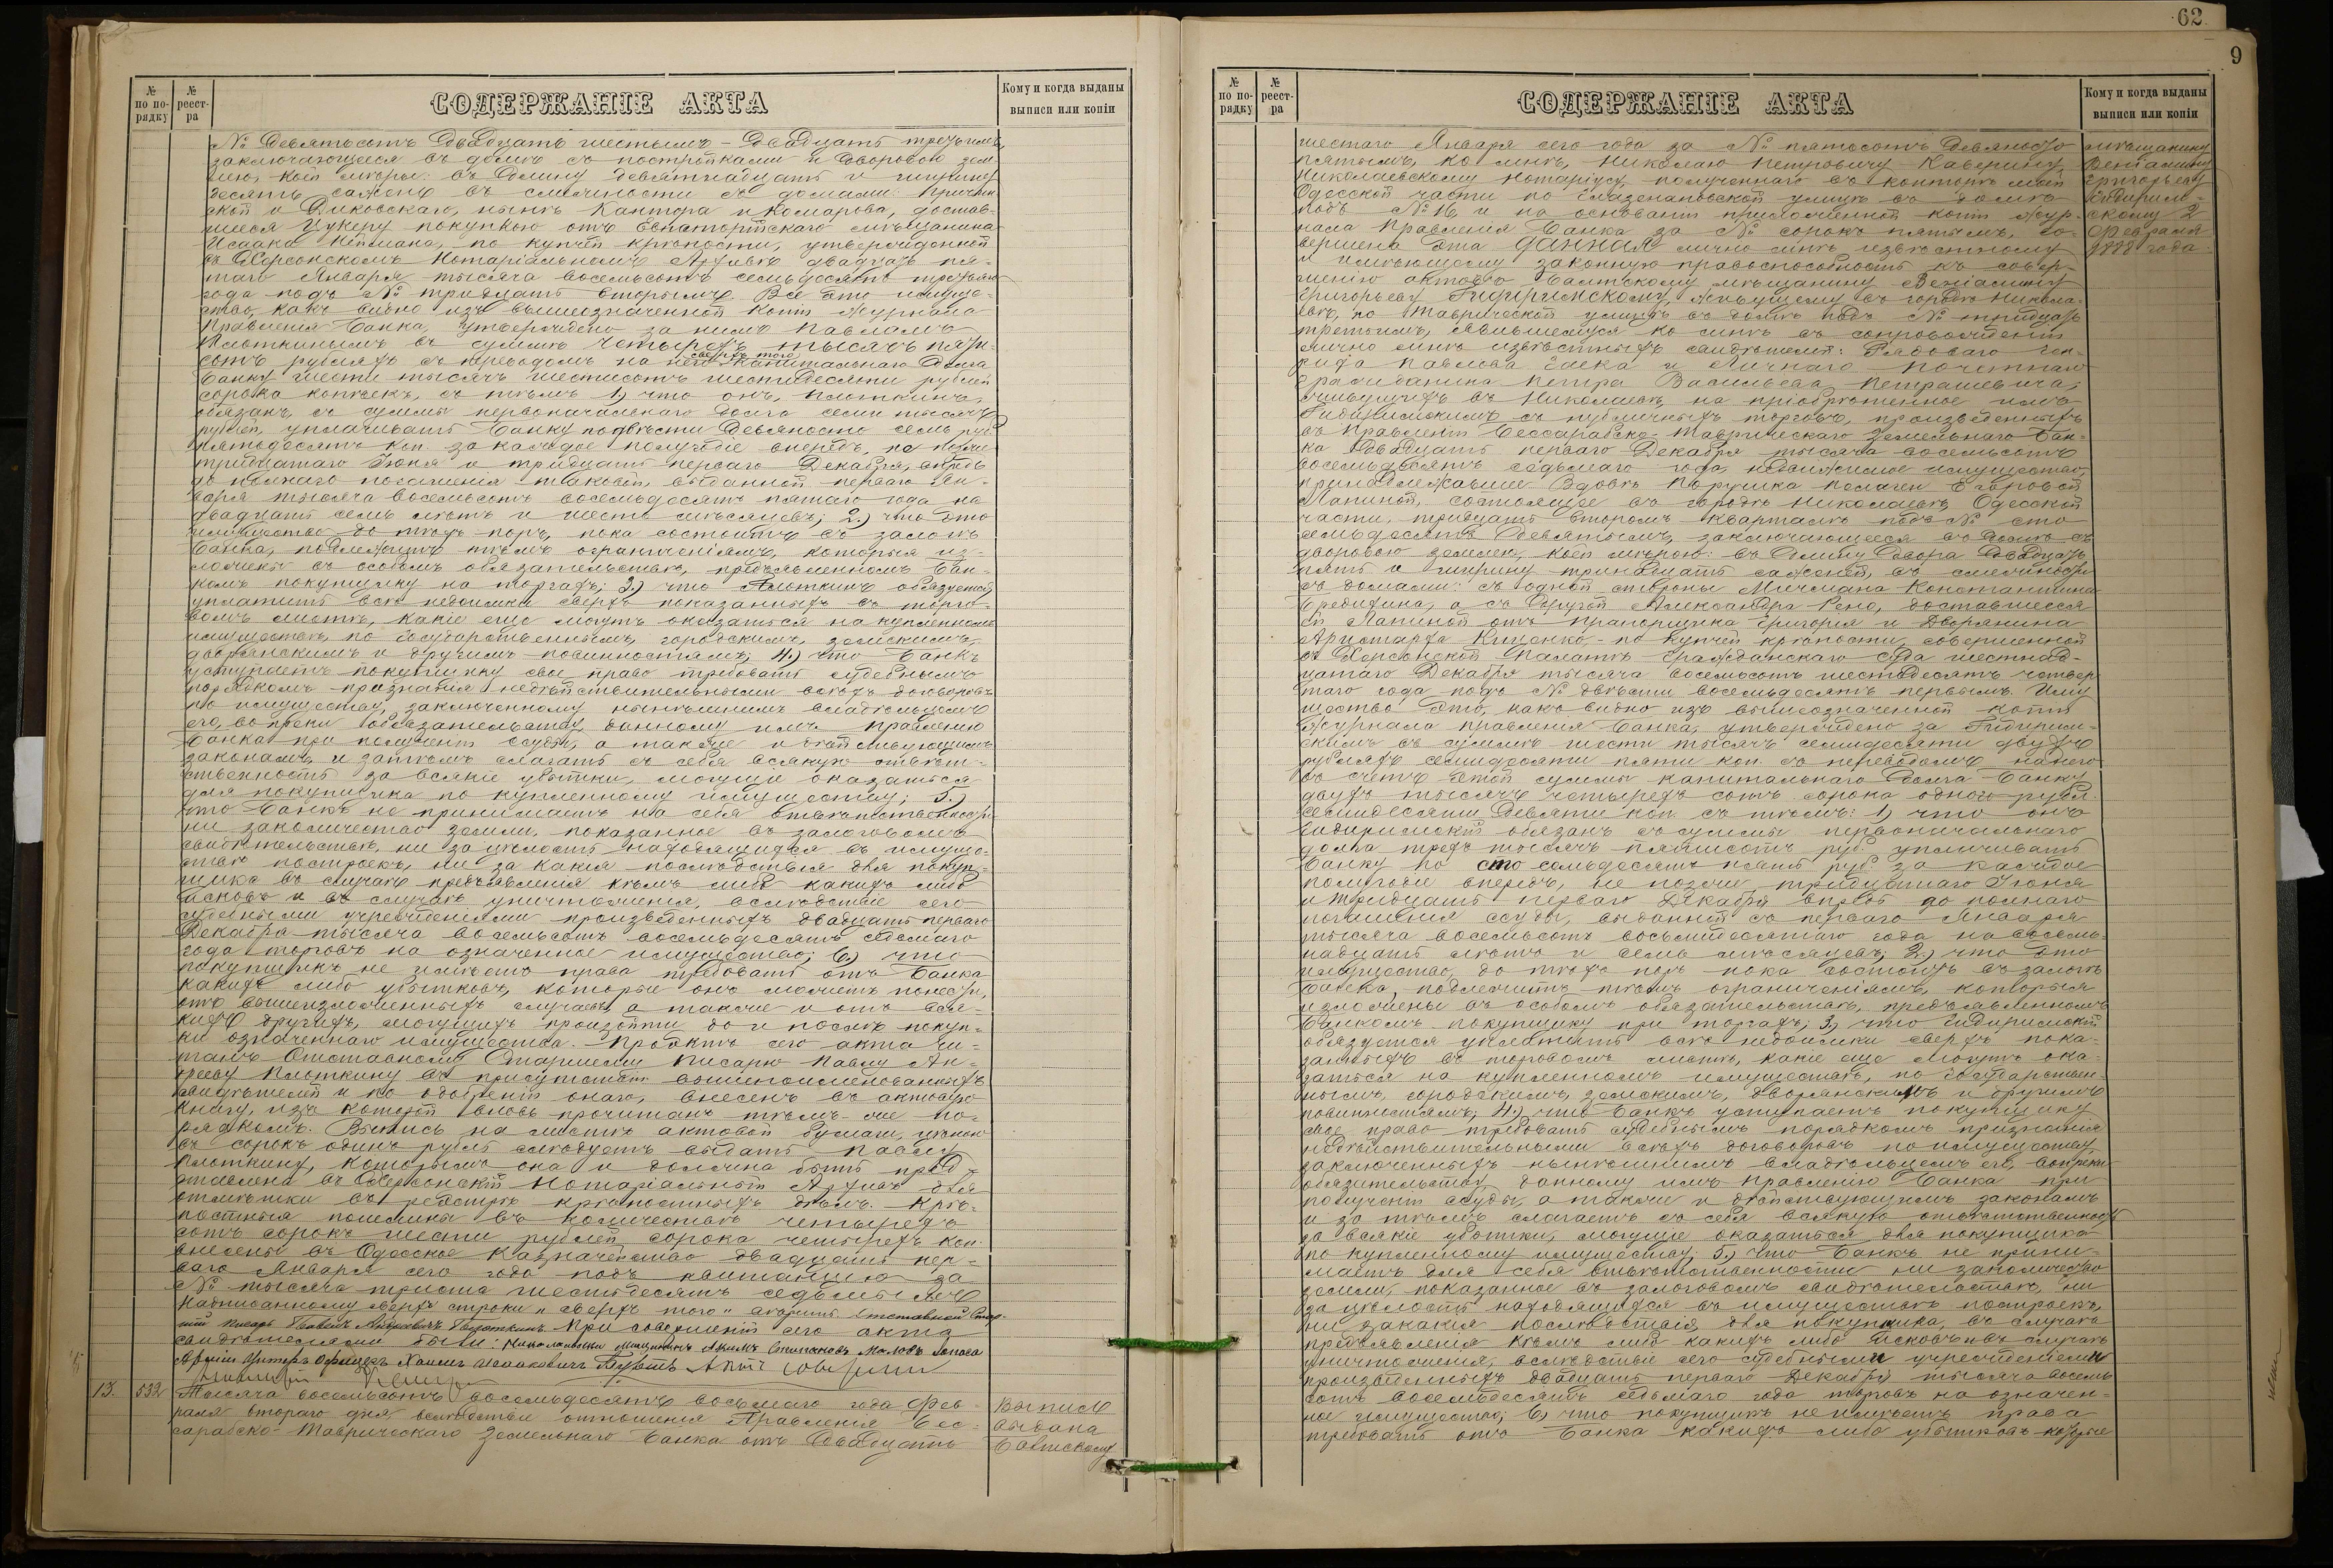 № по порядку
№ реестра
СОДЕРЖАНІЕ АКТА
Кому и когда выданы выписи или копіи
№ Девятьсотъ Двадцать шестымъ – Двадцать третьимъ,
заключающееся въ домѣ съ постройками и дворовою зем-
лею, коей мѣры: въ длину девятнадцать и ширину
десять сажень въ смежности съ домами:
и Диковскаго, нынѣ Кантора и Комарова, достав-
шееся Цукеру покупкою отъ Евпаторійскаго мѣщанина
Исаака Неймана, по купчей крѣпости, утвержденной
въ Херсонскомъ Нотаріальномъ Архивѣ двадцать пя-
таго Января тысяча восемьсотъ семьдесятъ третьяго
года подъ № тридцать вторымъ. Все это имуще-
ство, какъ видно изъ вышеозначенной копіи журнала
Правленія Банка, утверждено за нимъ Павломъ
Плоткинымъ въ суммѣ четырехъ тысячъ пяти-
сверхъ того
сотъ рублей съ переводомъ на него капитальнаго долга
Банку шести тысячъ шестисотъ шестидесяти рублей
сорока копѣекъ, съ тѣмъ: 1) что онъ, Плоткинъ,
обязанъ, съ суммы первоначальнаго долга семи тысячъ
рублей, уплачивать Банку по двѣсти девяносто семь руб.
пятьдесятъ коп. за каждое полугодіе впередъ, не позже
тридцатаго Іюня и тридцать перваго Декабря, впредь
до полнаго погашенія таковой, выданной перваго Ян-
варя тысяча восемьсотъ восемьдесятъ пятаго года на
двадцать семь лѣтъ и шесть мѣсяцевъ; 2) что это
имущество до тѣхъ поръ, пока состоитъ въ залогѣ
Банка, подлежитъ тѣмъ ограниченіямъ, которыя из-
ложены въ особомъ обязательствѣ, предъявленномъ Бан-
комъ покупщику на торгахъ; 3) что Плоткинъ обязуется
уплатить всѣ недоимки сверхъ показанныхъ въ торго-
вомъ листѣ, какіе еще могутъ оказаться на купленномъ
имуществѣ, по Государственнымъ, городскимъ, земскимъ,
дворянскимъ и другимъ повинностямъ; 4) что Банкъ
уступаетъ покупщику свое право требовать судебнымъ
порядкомъ признанія недѣйствительными всѣхъ договоровъ
по имуществу, заключенному нынѣшнимъ владѣльцемъ
его, вопреки обязательству, данному имъ Правленію
Банка при полученіи ссуды, а также и дѣйствующимъ
законамъ и затѣмъ слагаетъ съ себя всякую отвѣт-
ственность за всякіе убытки, могущіе оказаться
для покупщика по купленному имуществу; 5)
что Банкъ не принимаетъ на себя отвѣтственности
ни за количество земли, показанное въ залоговомъ
свидѣтельствѣ, ни за цѣлость находящихся въ имуще-
ствѣ построекъ, ни за какія послѣдствія для покуп-
щика въ случаѣ предъявленія кѣмъ либо какихъ либо
исковъ и въ случаѣ уничтоженія, вслѣдствіе сего
судебными учрежденіями произведенныхъ двадцать перваго
Декабря тысяча восемьсотъ восемьдесятъ седьмаго
года торговъ на означенное имущество; 6) что
покупщикъ не имѣетъ права требовать отъ Банка
какихъ либо убытковъ, которые онъ можетъ понести,
отъ вышеизложенныхъ случаевъ, а также и отъ вся-
кихъ другихъ, могущихъ произойти до и послѣ покуп-
ки означеннаго имущества. Проэктъ сего акта чи-
танъ Отставному Старшему Писарю Павлу Ан-
дрееву Плоткину въ присутствіи вышепоименованныхъ
свидѣтелей и по одобреніи онаго, внесенъ въ актовую
книгу, изъ которой вновь прочитанъ тѣмъ-же по-
рядкомъ. Выпись на листѣ актовой бумаги, цѣною
въ сорокъ одинъ рубль слѣдуетъ выдать Павлу
Плоткину, которымъ она и должна быть пред-
ставлена въ Херсонскій Нотаріальный Архивъ для
отмѣтки въ реестрѣ крѣпостныхъ дѣлъ. Крѣ-
постныя пошлины въ количествѣ четырехъ
сотъ сорокъ шести рублей сорока четырехъ коп.
внесены въ Одесское Казначейство двадцать пер-
ваго Января сего года подъ квитанцію за
№ тысяча триста шестьдесятъ седьмымъ.
Надписанному сверхъ строки „сверхъ того" вѣрить. Отставной Стар-
шій писарь Павелъ Андреевъ Плоткинъ. При совершеніи сего акта
свидѣтелями были: Николаевскій Мѣщанинъ Акимъ Степановъ Маловъ Запаса
Арміи Унтеръ-Офицеръ Хаимъ Исааковичъ
13.
532.
Тысяча восемьсотъ восемьдесятъ восьмаго года Фев-
раля втораго дня, вслѣдствіе отношенія Правленія Бес-
сарабско-Таврическаго Земельнаго Банка отъ Двадцать
Выпись
выдана
Балтскому
62
9
№ по порядку
№ реестра
СОДЕРЖАНІЕ АКТА
Кому и когда выданы выписи или копіи
шестаго Января сего года за № пятьсотъ девяносто
пятымъ, ко мнѣ, Николаю Петровичу Каверину,
Николаевскому Нотаріусу, полученнаго въ конторѣ моей
Одесской части по Глазенаповской улицѣ въ домѣ
подъ № 16, и на основаніи приложенной копіи жур-
нала Правленія Банка за № сорокъ пятымъ, со-
вершена эта ДАННАЯ лично мнѣ извѣстному
и имѣющему законную правоспособность къ совер-
шенію актовъ Балтскому мѣщанину Веніамину
Григорьеву Гидиримскому, живущему въ городѣ Никола-
евѣ, по Таврической улицѣ въ домѣ подъ № тридцать
третьимъ, явившемуся ко мнѣ въ сопровожденіи
лично мнѣ извѣстныхъ свидѣтелей: Рядоваго
Павлова и Личнаго Почетнаго
Гражданина Петра Васильева Петрашевича,
живущихъ въ Николаевѣ, на пріобрѣтенное имъ
Гидиримскимъ съ публичныхъ торговъ, произведенныхъ
въ Правленіи Бессарабско-Таврическаго Земельнаго Бан-
ка двадцать перваго Декабря тысяча восемьсотъ
восемьдесятъ седьмаго года, недвижимое имущество,
принадлежавшее Вдовѣ Поручика Пелагеи Егоровой
Лапиной, состоящее въ городѣ Николаевѣ, Одесской
части, тридцать второмъ кварталѣ подъ № сто
семьдесятъ девятымъ, заключающееся въ домѣ съ
дворовою землею, коей мѣрою: въ длину двора двадцать
пять и ширину тринадцать саженей, въ смежности
съ домами: съ одной стороны Мичмана Константина
Бредихина, а съ другой Александра Рено, доставшееся
ей Лапиной отъ Прапорщика Григорія и Дворянина
Аристарха Кищенко – по купчей крѣпости, совершенной
въ Херсонской Палатѣ Гражданскаго Суда шестнад-
цатаго Декабря тысяча восемьсотъ шестьдесятъ четвер-
таго года подъ № двѣсти восемьдесятъ первымъ. Иму-
щество это, какъ видно изъ вышеозначенной копіи
журнала Правленія Банка, утверждено за Гидирим-
скимъ въ суммѣ шести тысячъ семидесяти двухъ
рублей семидесяти пяти коп. съ переводомъ на него
въ счетъ этой суммы капитальнаго долга Банку
двухъ тысячъ четырехъ сотъ сорока одного рубл.
семидесяти девяти коп. съ тѣмъ: 1) что онъ
Гидиримскій обязанъ съ суммы первоначальнаго
долга трехъ тысячъ пятисотъ руб. уплачивать
Банку по сто семьдесятъ пять руб. за каждое
полугодіе впередъ, не позже тридцатаго Іюня
и тридцать перваго Декабря впредь до полнаго
погашенія ссуды, выданной съ перваго Января
тысяча восемьсотъ восьмидесятаго года на восем-
надцать лѣтъ и семь мѣсяцевъ; 2) что это
имущество, до тѣхъ поръ пока состоитъ въ залогѣ
Банка, подлежитъ тѣмъ ограниченіямъ, которыя
изложены въ особомъ обязательствѣ, предъявленномъ
Банкомъ покупщику при торгахъ; 3) что Гидиримскій
обязуется уплатить всѣ недоимки сверхъ пока-
занныхъ въ торговомъ листѣ, какіе еще могутъ ока-
заться на купленномъ имуществѣ, по Государствен-
нымъ, городскимъ, земскимъ, дворянскимъ и другимъ
повинностямъ; 4) что Банкъ уступаетъ покупщику
свое право требовать судебнымъ порядкомъ признанія
недѣйствительными всѣхъ договоровъ по имуществу,
заключенныхъ нынѣшнимъ владѣльцемъ его, вопреки
обязательству, данному имъ Правленію Банка при
полученіи ссуды, а также и дѣйствующимъ законамъ
и за тѣмъ слагаетъ съ себя всякую отвѣтственность
за всякіе убытки, могущіе оказаться для покупщика
по купленному имуществу; 5) что Банкъ не прини-
маетъ для себя отвѣтственности ни за количество
земли, показанное въ залоговомъ свидѣтельствѣ, ни
за цѣлость находящихся въ имуществѣ построекъ,
ни за какія послѣдствія для покупщика, въ случаѣ
предъявленія кѣмъ либо какихъ либо исковъ и въ случаѣ
уничтоженія, вслѣдствіе сего судебными учрежденіями
произведенныхъ двадцать перваго Декабря тысяча восемь
сотъ восемьдесятъ седьмаго года торговъ на означен-
ное имущество; 6) что покупщикъ не имѣетъ права
требовать отъ Банка какихъ либо убытковъ которые
мѣщанину
Веніамину
Григорьеву
Гидирим-
скому 2
Февраля
1888 года